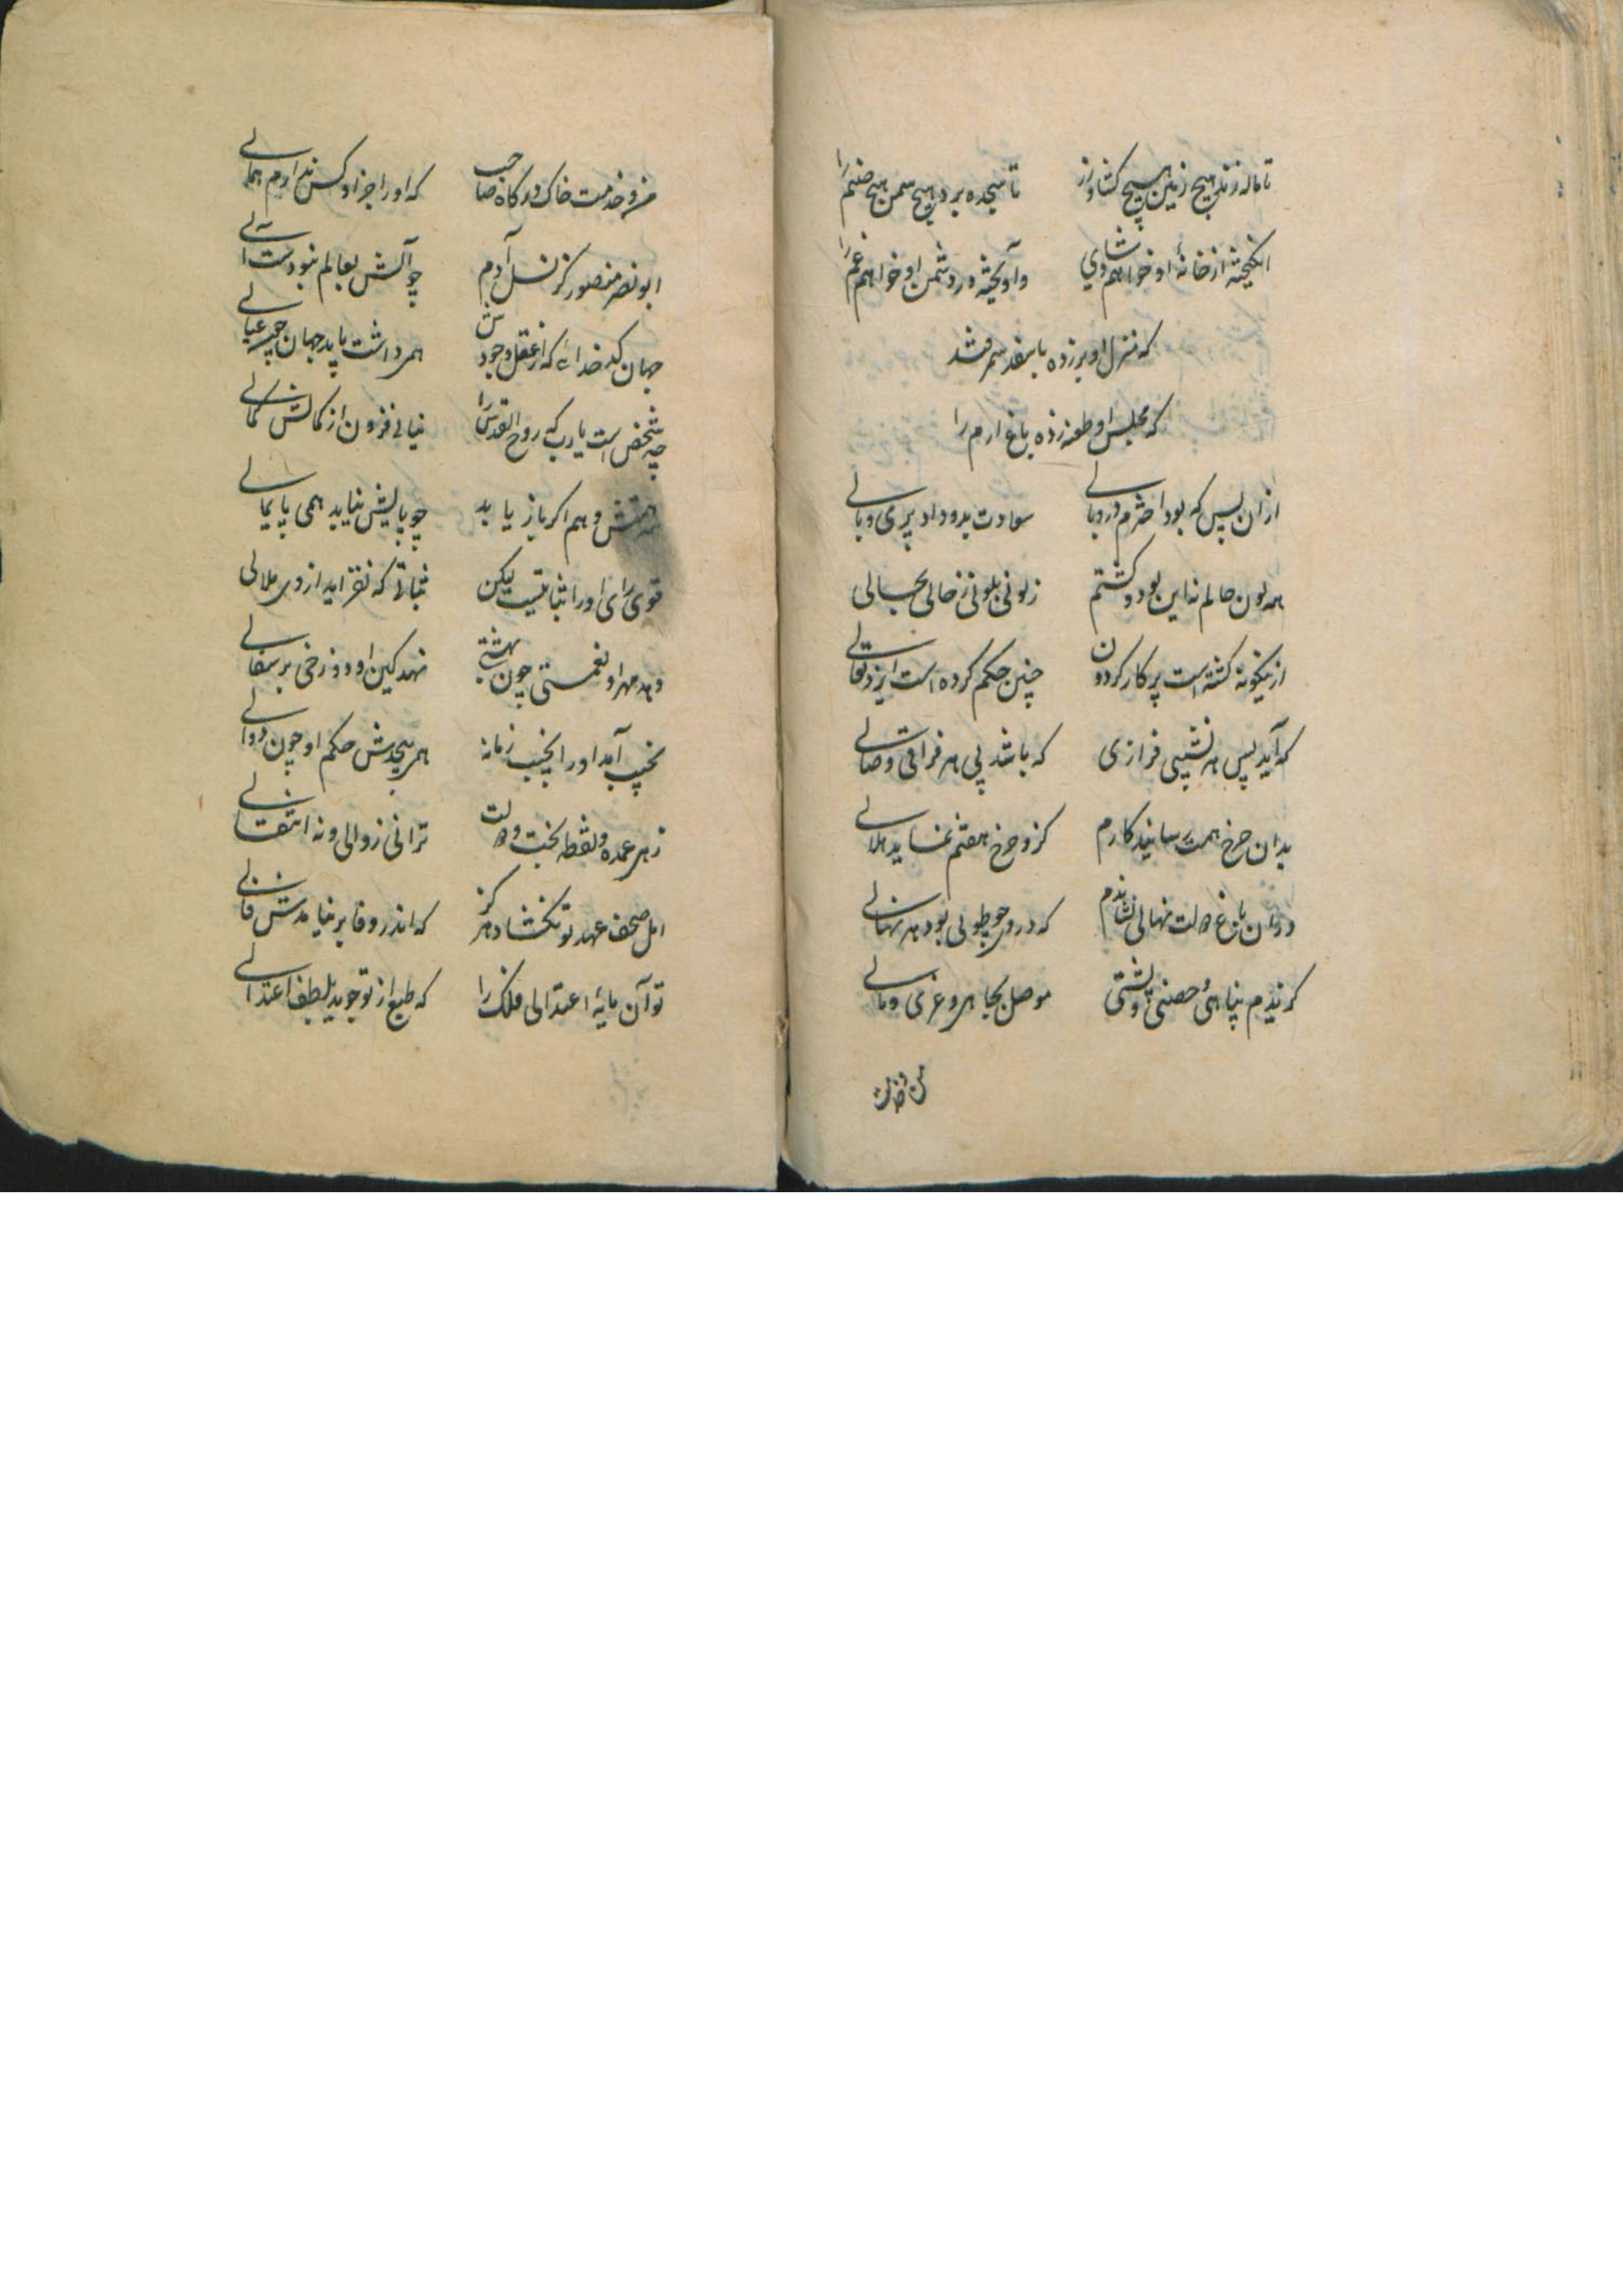 تا ناله زند هیچ زمین هیچ کشاورز تا سجده برد هیچ سمن هیچ صنم را
انکیخته از خانهٔ او خواهم شادی وآویخته در دشمن او خواهم غم را
که منزل او بر زده با سغد سمرقند
که مجلس او طعنه زده باغ ارم را
ازان پس که بود اخترم در وبالی سعادت بدو داد پری و بالی
همه لون حالم نه این بود و کشتم زلونی بلونی زحالی بحالی
ازینکونه کشته است پرکار کردون چنین حکم کرده است ایزد تعالی
که آید پس هر نشیبی فرازی که باشد پی هر فراقی وصالی
بدان چرخ همت رسانید کارم کزو چرخ هفتم نماید هلالی
دران باغ دولت نهالی نشاندم که در وی چو طوبی بود هر نهالی
کرندیم پناهی و حصنی و پشتی موصل بجاهی و عزی و مالی
من و خدمت
من و خدمت خاک درکاه صاحب که او را جز او کس ندارم همالی
ابو نصر منصور کز نسل آدم چو آلش بعالم نبودست آلی
جهان کدخدائی که از عقل و جودش همی داشت باید جهان چون عیالی
چه شخص است یارب که روح القدس را نیابی فزون از کمالش کمالی
همتش وهم اکر باز یابد چو پالیش نیاید همی پایمالی
قوی رای او را ثباتیست لیکن ثباتی که نفزاید از وی ملالی
دهد مهر او نعمتی چون بهشتی نهد کین او دوزخی بر سفالی
بخیب آمد او را بخیب زمانه همی پیچدش حکم او چون دوالی
زهر عمده و نقطه بخت و دولت ترا نی زوالی و نه انتقالی
امل مصحف عهد تو نکشاد هرکز که اندر وفا بر نیامدش فالی
تو آن مایهٔ اعتدالی فلک را که طبع از تو جوید بلطف اعتدالی